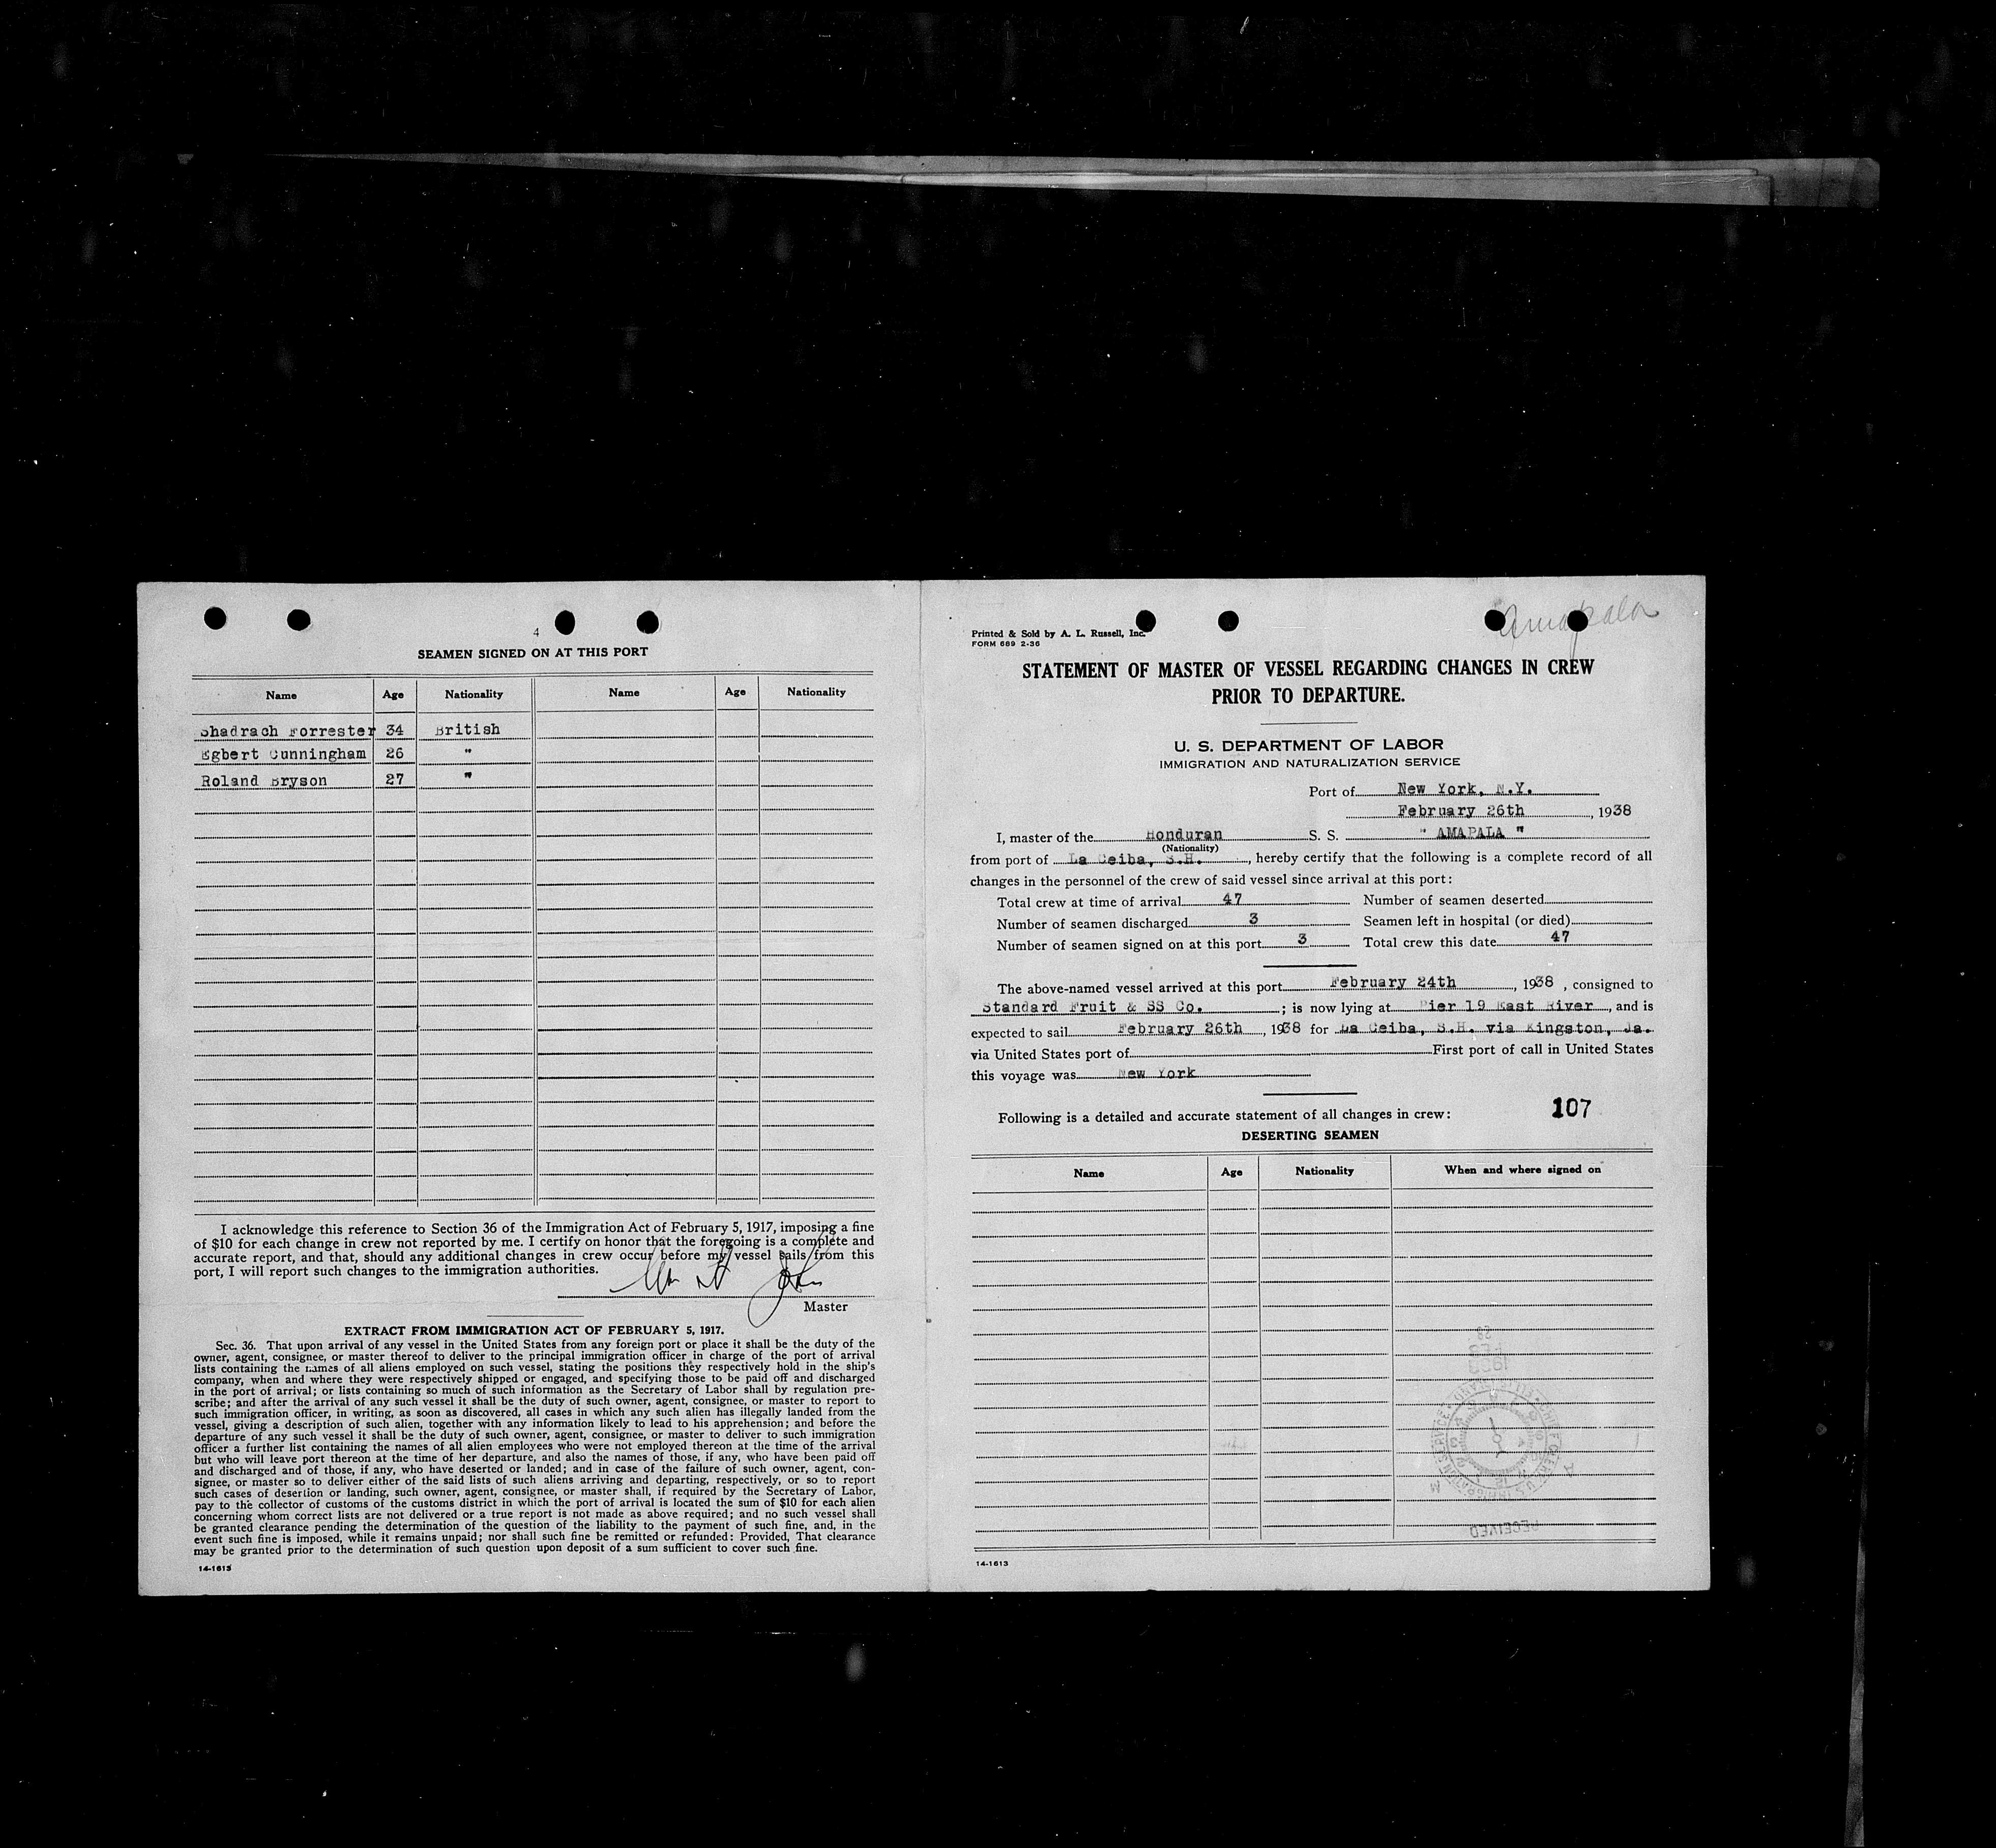 4
SEAMEN SIGNED ON AT THIS PORT
Name Age Nationality Name Age Nationality
Shadrach Forrester 34 British
Egbert Cunningham 26 "
Roland Bryson 27 "
I acknowledge this reference to Section 36 of the Immigration Act of February 5, 1917, imposing a fine
of $10 for each change in crew not reported by me. I certify on honor that the foregoing is a complete and
accurate report, and that, should any additional changes in crew occur before my vessel sails from this
port, I will report such changes to the immigration authorities.
Master
EXTRACT FROM IMMIGRATION ACT OF FEBRUARY 5, 1917.
Sec. 36. That upon arrival of any vessel in the United States from any foreign port or place it shall be the duty of the
owner, agent, consignee, or master thereof to deliver to the principal immigration officer in charge of the port of arrival
lists containing the names of all aliens employed on such vessel, stating the positions they respectively hold in the ship's
company, when and where they were respectively shipped or engaged, and specifying those to be paid off and discharged
in the port of arrival; or lists containing so much of such information as the Secretary of Labor shall by regulation pre-
scribe; and after the arrival of any such vessel it shall be the duty of such owner, agent, consignee, or master to report to
such immigration officer, in writing, as soon as discovered, all cases in which any such alien has illegally landed from the
vessel, giving a description of such alien, together with any information likely to lead to his apprehension; and before the
departure of any such vessel it shall be the duty of such owner, agent, consignee, or master to deliver to such immigration
officer a further list containing the names of all alien employees who were not employed thereon at the time of the arrival
but who will leave port thereon at the time of her departure, and also the names of those, if any, who have been paid off
and discharged and of those, if any, who have deserted or landed; and in case of the failure of such owner, agent, con-
signee, or master so to deliver either of the said lists of such aliens arriving and departing, respectively, or so to report
such cases of desertion or landing, such owner, agent, consignee, or master shall, if required by the Secretary of Labor,
pay to the collector of customs of the customs district in which the port of arrival is located the sum of $10 for each alien
concerning whom correct lists are not delivered or a true report is not made as above required; and no such vessel shall
be granted clearance pending the determination of the question of the liability to the payment of such fine, and, in the
event such fine is imposed, while it remains unpaid; nor shall such fine be remitted or refunded: Provided, That clearance
may be granted prior to the determination of such question upon deposit of a sum sufficient to cover such fine.
14-1613
Amapala
Printed & Sold by A. L. Russell, Inc.
FORM 689 2-36
STATEMENT OF MASTER OF VESSEL REGARDING CHANGES IN CREW
PRIOR TO DEPARTURE.
U. S. DEPARTMENT OF LABOR
IMMIGRATION AND NATURALIZATION SERVICE
Port of New York, N.Y.
February 26th, 1938
I, master of the Honduran S. S. " AMAPALA "
(Nationality)
from port of La Ceiba, S.H., hereby certify that the following is a complete record of all
changes in the personnel of the crew of said vessel since arrival at this port:
Total crew at time of arrival 47 Number of seamen deserted
Number of seamen discharged 3 Seamen left in hospital (or died)
Number of seamen signed on at this port 3 Total crew this date 47
The above-named vessel arrived at this port February 24th, 1938, consigned to
Standard Fruit & SS Co.; is now lying at Pier 19 East River, and is
expected to sail February 26th, 1938 for La Ceiba, S.H. via Kingston, Ja.
via United States port of First port of call in United States
this voyage was New York
Following is a detailed and accurate statement of all changes in crew: 107
DESERTING SEAMEN
Name Age Nationality When and where signed on
RECEIVED
14-1613